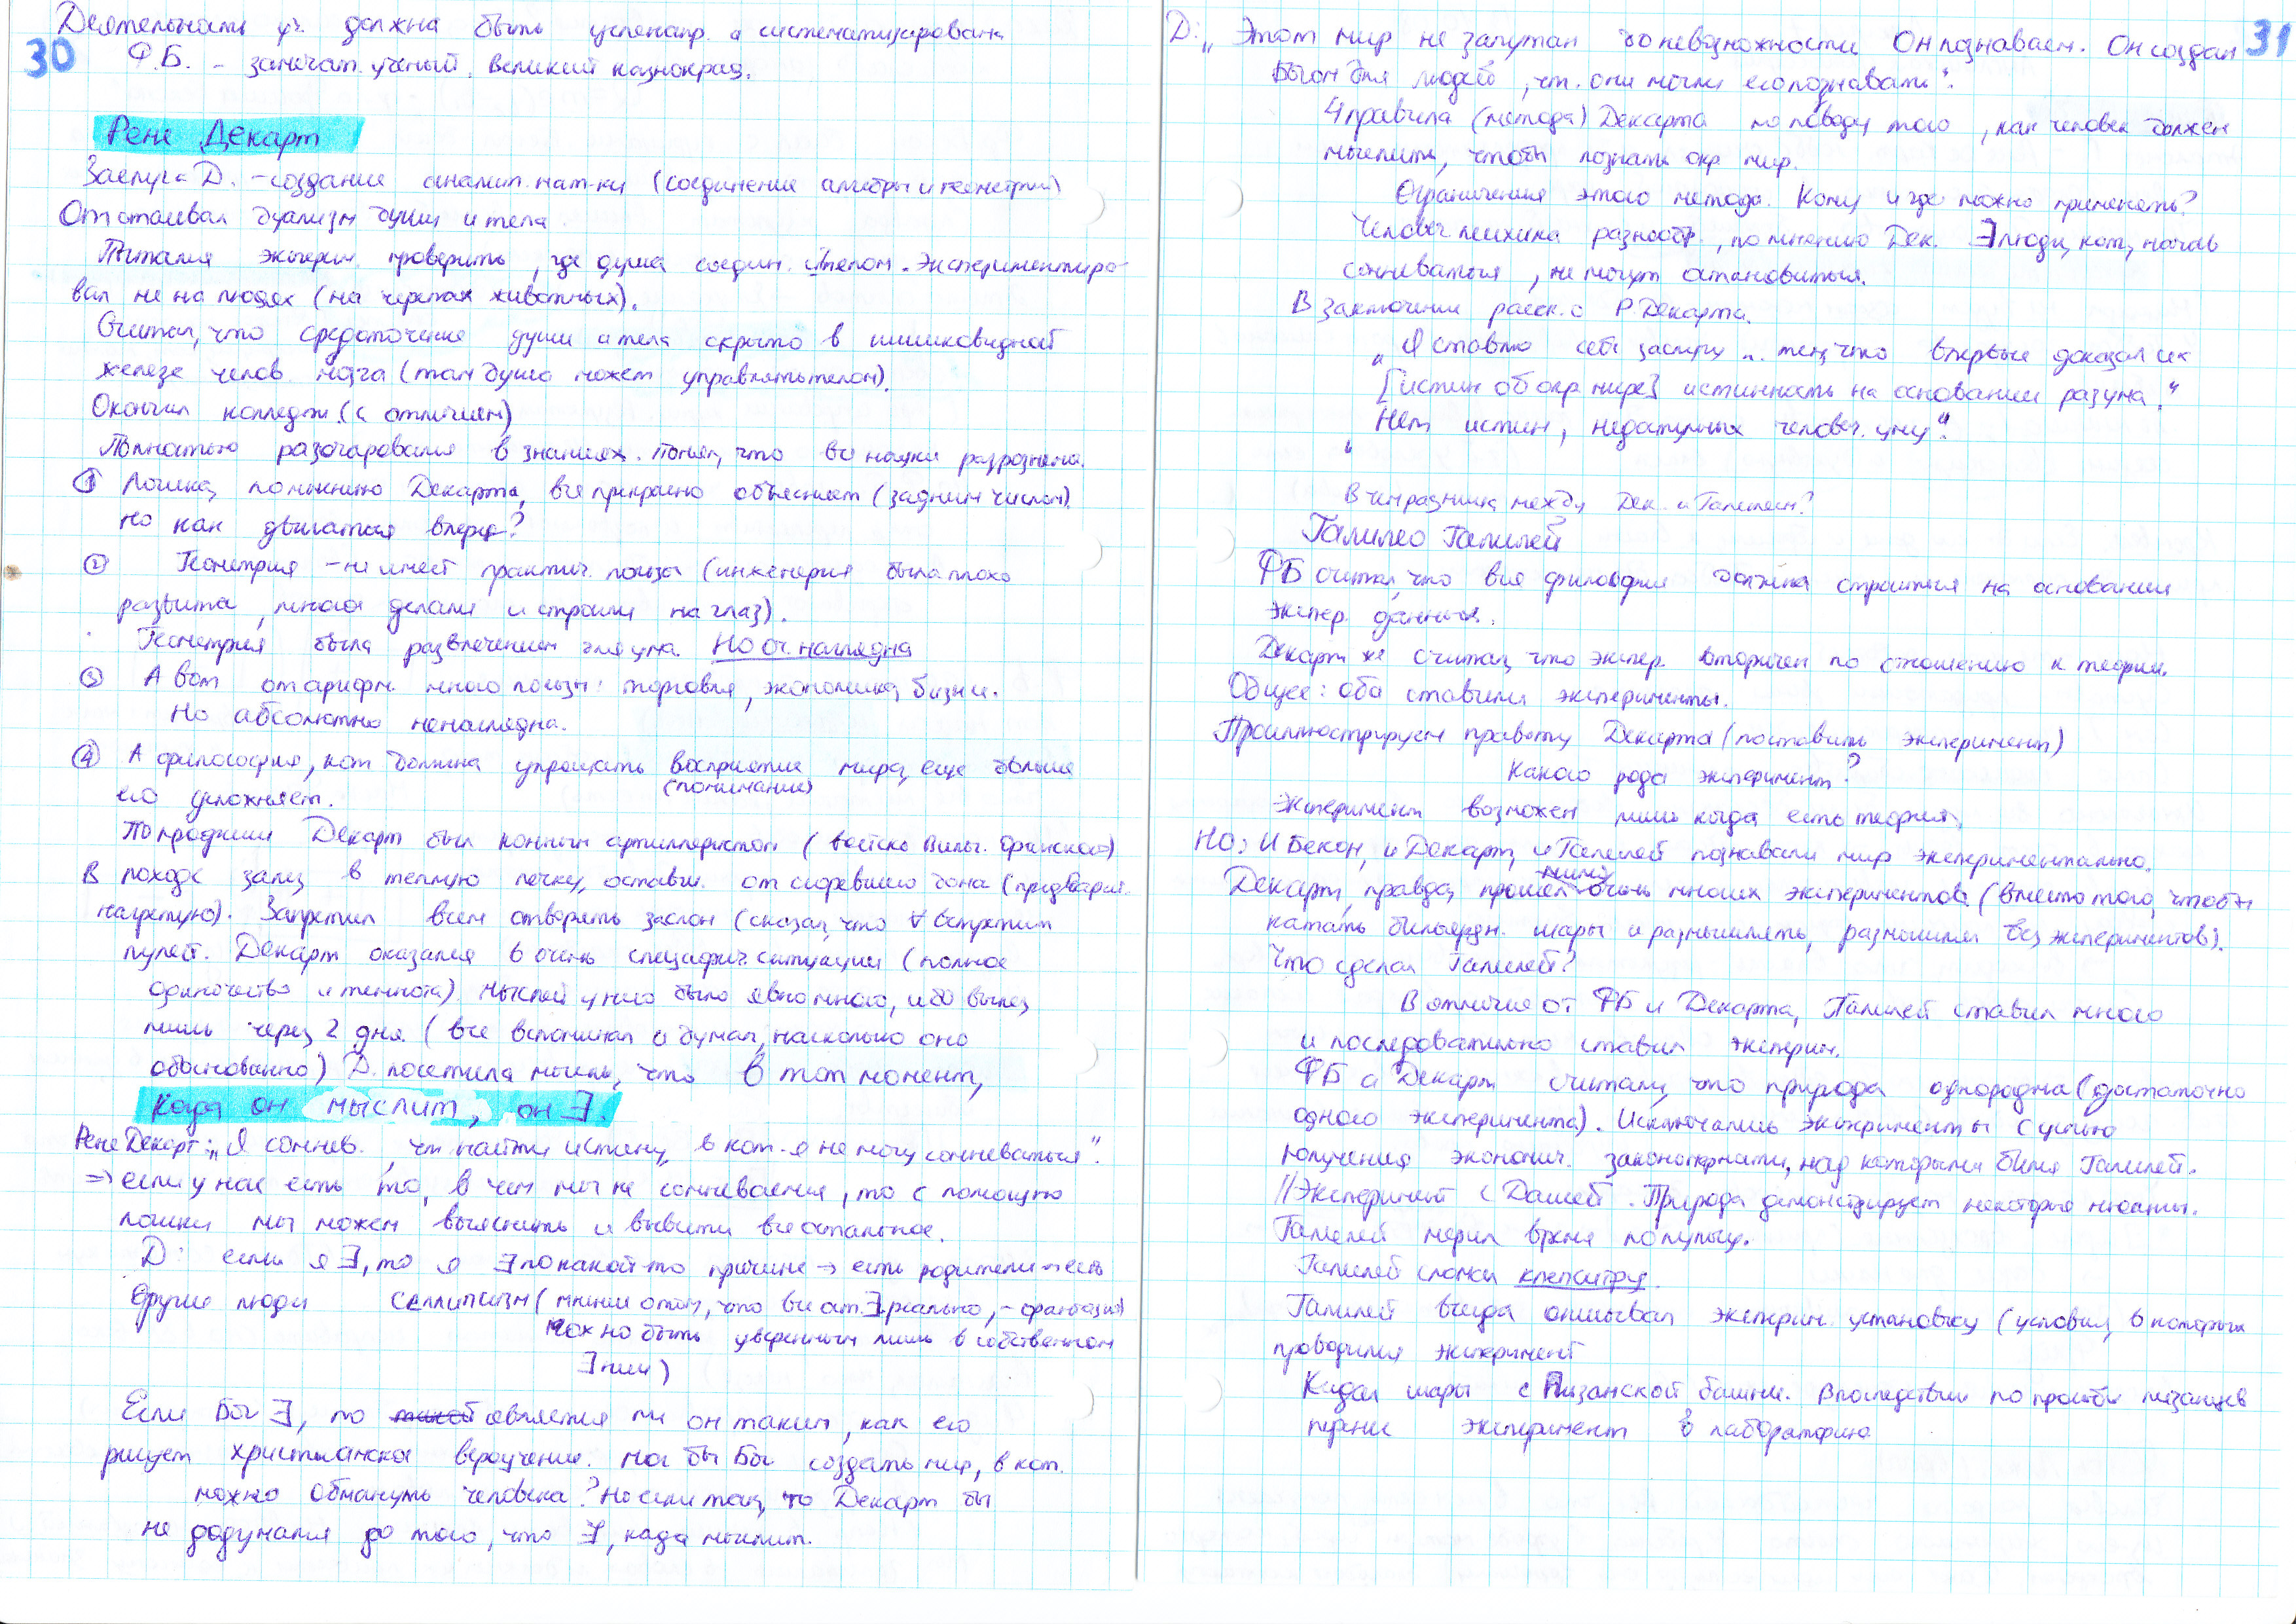 30
Деятельность уч. должна быть целенапр. и систематизирована
Ф.Б. – замечат. ученый, великий казнокрад.
Рене Декарт
Заслуга Д. – создание аналит. мат-ки (соединение алгебры и геометрии)
Отстаивал дуализм души и тела
Пытался экперим. проверить, где душа соедин. с телом. Экспериментиро-
вал не на людях (на черепах животных).
Считал, что средоточение души и тела скрыто в шишковидной
железе челов. мозга (там душа может управлять телом).
Окончил колледж (с отличием)
Полностью разочаровался в знаниях. Понял, что все науки разрознены.
① Логика, по мнению Декарта, все прекрасно объясняет (задним числом).
Но как двигаться вперед?
② Геометрия – не имеет практич. польза (инженерия была плохо
развита, многое делали и строили на глаз).
Геометрия была развлечением для ума. Но оч. наглядна
③ А вот от арифм. много пользы: торговля, экономика, бизнес.
Но абсолютно ненаглядна.
④ А философия, кот. должна упрощать восприятие мира, еще больше
(понимание)
его усложняет.
По професии Декарт был конным артиллеристом (войско Вильг. Оранского)
В походе залез в теплую печку, оставш. от сгоревшего дома (предварит.
нагретую). Запретил всем отворять заслон (сказал, что ∀ встретит
пулей. Декарт оказался в очень специфич. ситуации (полное
одиночество и темнота). Мыслей у него было явно много, ибо вылез
лишь через 2 дня. (все вспоминал и думал, насколько оно
обосновано) Д. посетила мысль, что в тот момент,
Когда он мыслит, он ∃.
Рене Декарт: „Я сомнев., чт. найти истину, в кот. я не могу сомневаться“.
⇒ если у нас есть то, в чем мы не сомневаемся, то с помощью
логики мы можем выяснить и вывести все остальное.
Д: если я ∃, то я ∃ по какой-то причине → есть родители → есть
другие люди селлипсизм (мнение о том, что все ост. ∃ реально, – фантазия)
можно быть уверенным лишь в собственном
∃нии)
Если Бог ∃, то такой является ли он таким, как его
рисует христианское вероучение. Мог бы Бог создать мир, в кот.
можно обмануть человека? Но если так, то Декарт бы
не додумался до того, что ∃, когда мыслит.
31
Д: „Этот мир не запутан до невозможности. Он познаваем. Он создан
Богом для людей, чт. они могли его познавать“.
4 правила (метода) Декарта по поводу того, как человек должен
мыслить, чтобы познать окр. мир.
Ограничения этого метода. Кому и где можно применять?
Человеч. психика разнообр., по мнению Дек. ∃ люди, кот., начав
сомневаться, не могут остановиться.
В заключение расск. о Р. Декарте.
„Я ставлю себе заслугу в тем, что впервые доказал их
[истин об окр. мире] истинность на основании разума.“
„Нет истин, недоступных человеч. уму“.
В чем разница между Дек. и Галилеем?
Галилео Галилей
ФБ считал, что вся философия должна строиться на основании
экспер. данных.
Декарт же считал, что экспер. вторичен по отношению к теории.
Общее: оба ставили эксперименты.
Проиллюстрируем правоту Декарта (поставить эксперимент)
Какого рода эксперимент?
Эксперимент возможен лишь когда есть теория.
НО: И Бекон, и Декарт, и Галилей познавали мир экспериментально.
Декарт, правда, прошел мимо очень многих экспериментов (вместо того, чтобы
катать бильярдн. шары и размышлять, размышлял без экспериментов).
Что сделал Галилей?
В отличие от ФБ и Декарта, Галилей ставил много
и последовательно ставил эксперим.
ФБ и Декарт считали, что природа однородна (достаточно
одного эксперимента). Исключались эксперименты с целью
получения экономич. закономерности, над которыми бился Галилей.
// Эксперимент с Дашей. Природа демонстрирует некоторые нюансы.
Галилей мерил время по пульсу.
Галилей сломал клепситру.
Галилей всегда описывал эксперим. установку (условия, в которых
проводился эксперимент
Кидал шары с Пизанской башни. Впоследствии по просьбе пизанцев
перенес эксперимент в лабораторию